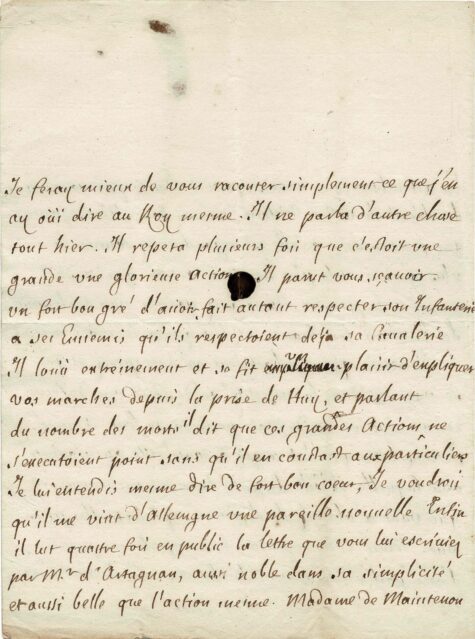 Je feray mieux de vous raconter simplement ce que j'en
ay oüi dire au Roy mesme. Il ne parla d'autre chose
tout hier. Il repeta plusieurs fois que c'estoit une
grande une glorieuse action. Il parut vous sçavoir
un fort bon gré d'avoir fait autant respecter son Infanterie
a ses Ennemis qu'ils respectoient deja sa Cavalerie
Il loüa extrémement et se fit un plaisir d'expliquer
vos marches depuis la prise de Huy, et parlant
du nombre des morts il dit que ces grandes Actions ne
s'executoient point sans qu'il en constast aux particuliers
Je lui entendis mesme dire de fort bon coeur, Je voudrois
qu'il me vint d'Allemagne une pareille nouvelle Enfin
il lut quattre fois en public la lettre que vous lui escriviez
par Mr d'Artagnan, aussi noble dans sa simplicité
et aussi belle que l'action mesme. Madame de Maintenon